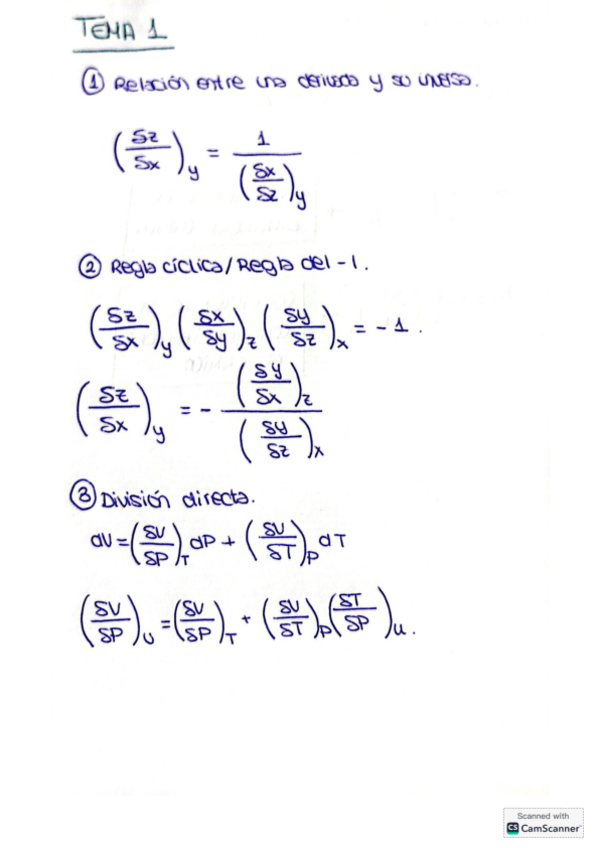 TEMA 1
① Relación entre una derivada y su inversa.
(δz/δx)_y = 1/(δx/δz)_y
② Regla cíclica/Regla del -1.
(δz/δx)_y (δx/δy)_z (δy/δz)_x = -1.
(δz/δx)_y = - (δy/δx)_z/(δy/δz)_x
③ División directa.
dV=(δV/δP)_T dP + (δV/δT)_P dT
(δV/δP)_U = (δV/δP)_T + (δV/δT)_P (δT/δP)_U.
Scanned with
CS CamScanner